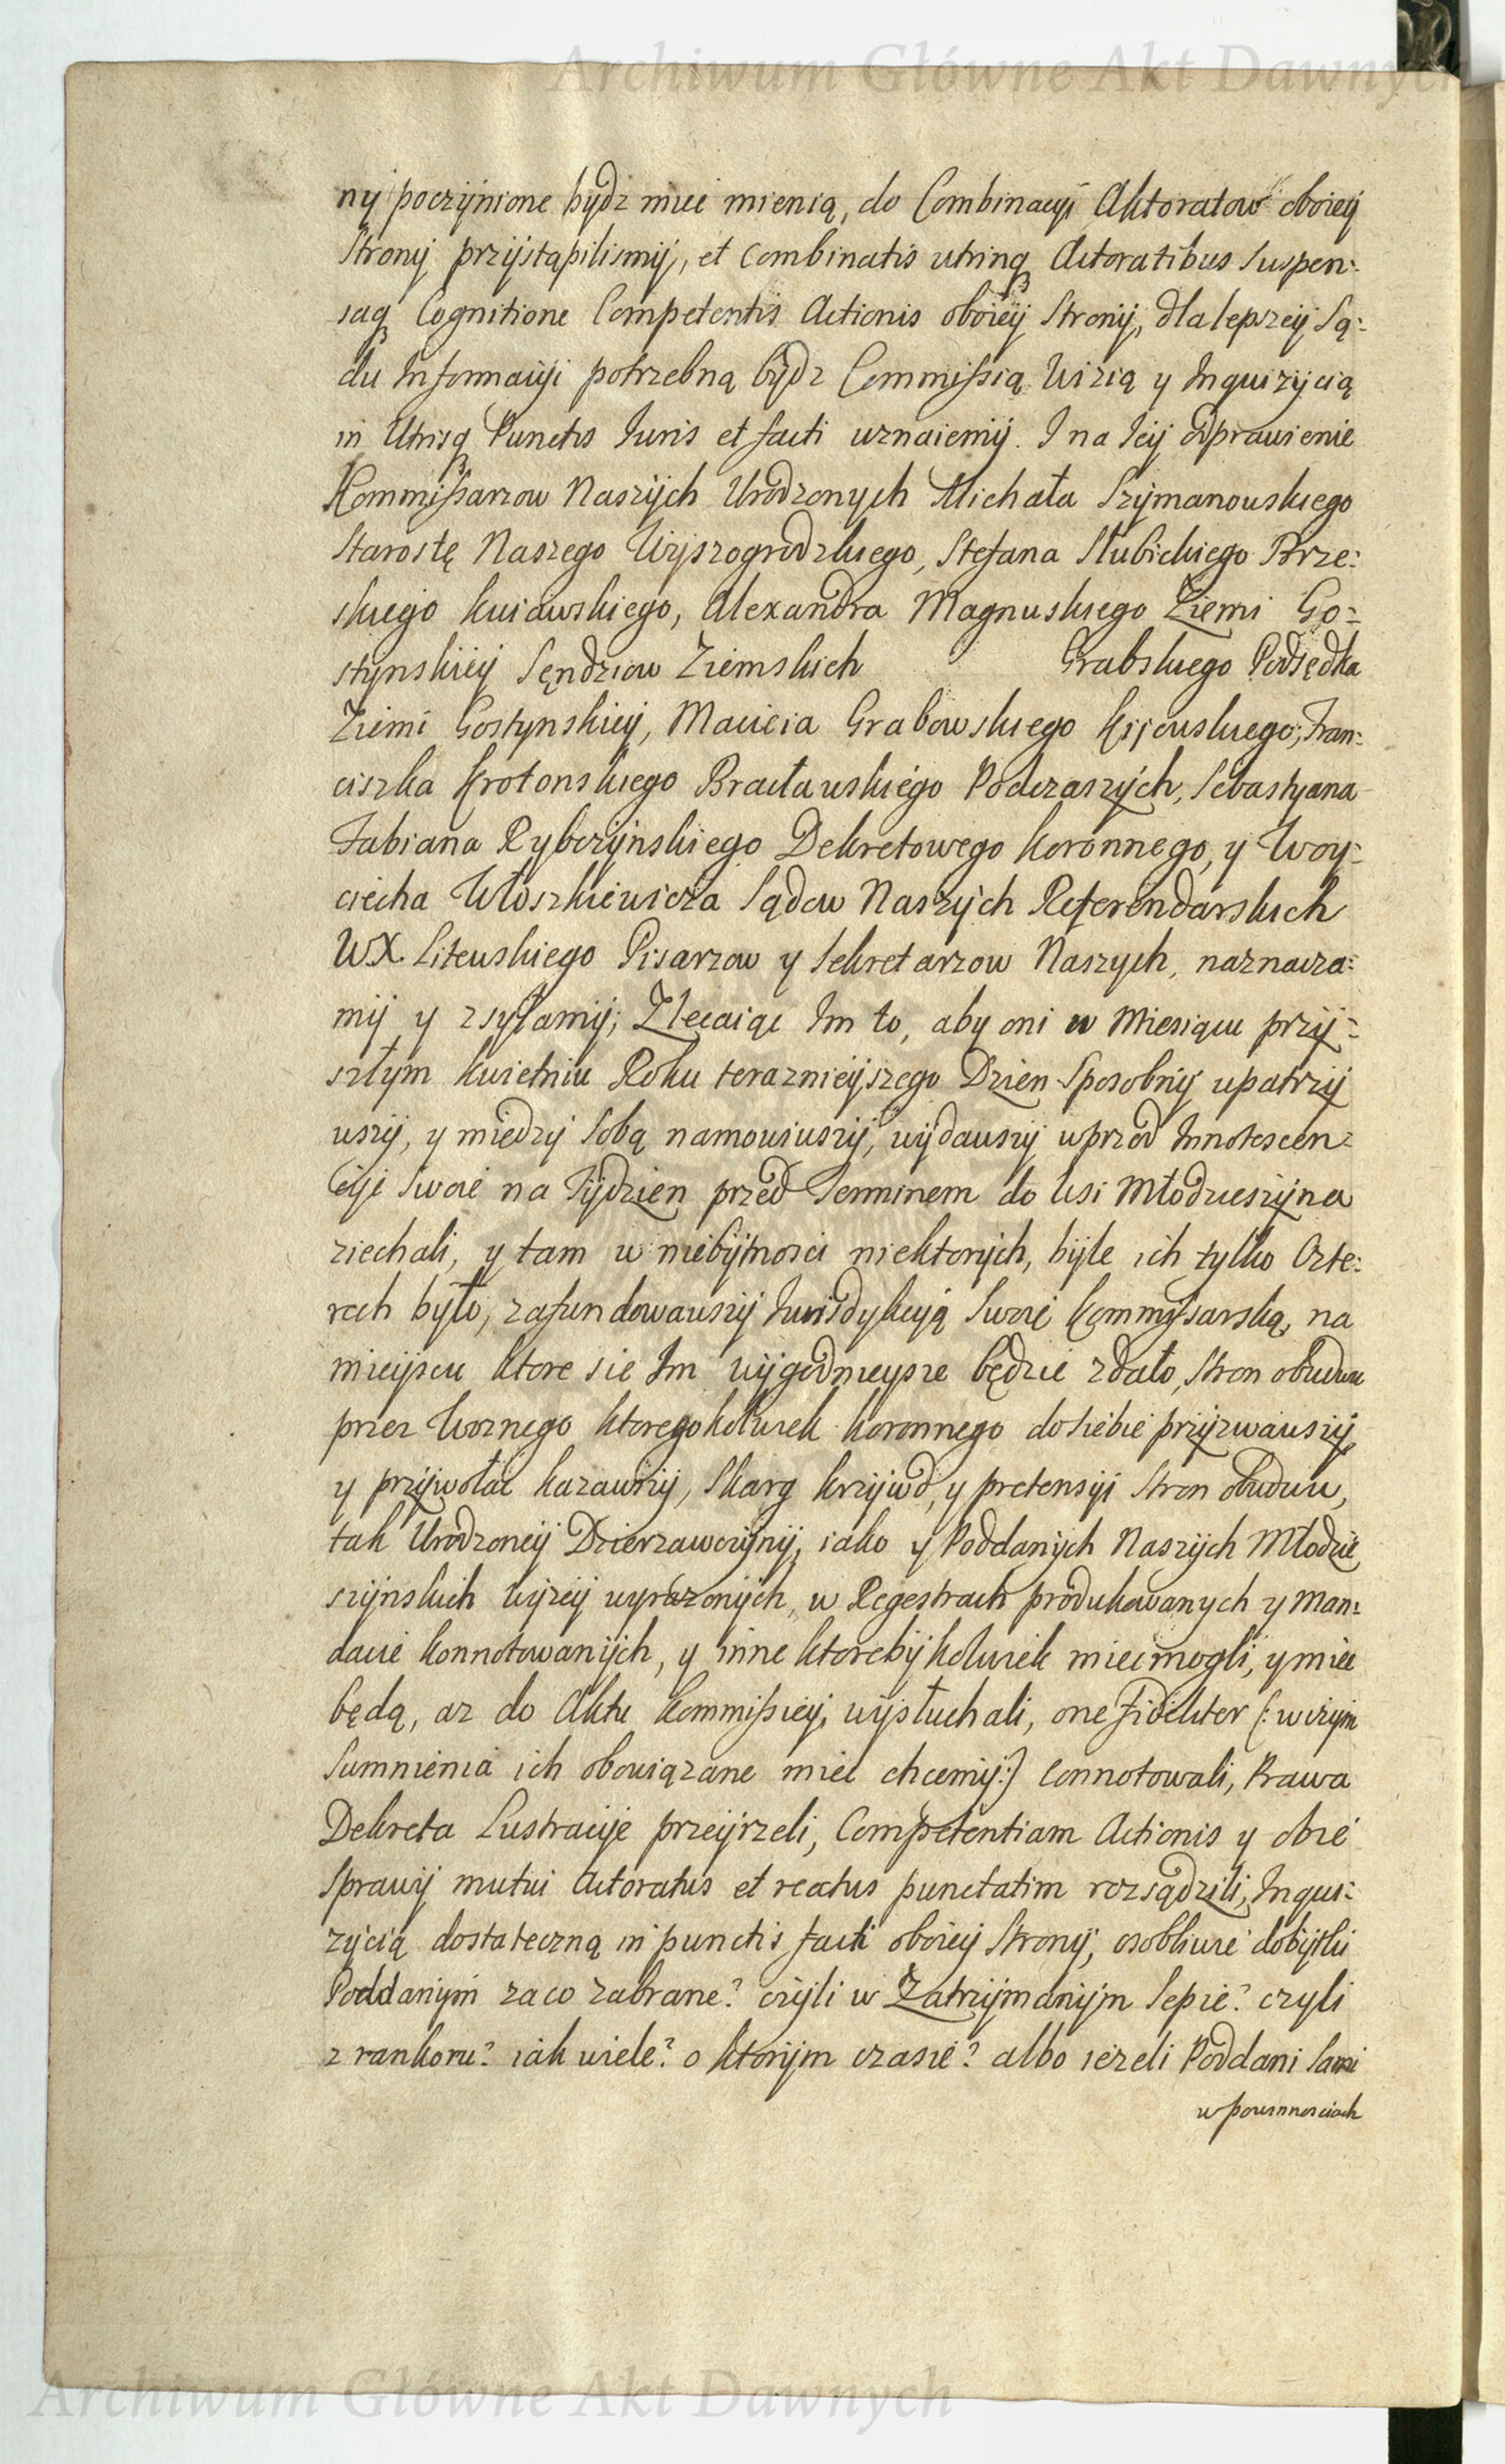 Archiwum Główne Akt Dawnych
ny poczynione bydz mieć mienią, do Combinacyi Aktoratow oboiey
Strony przystąpilismy, et combinatis utrinq Actoratibus Suspen:
saq Cognitione Competentis Actionis oboiey Strony, dla lepszey Są:
du Informacyi potrzebną bydz Commissią Wizią y Inquizycią
in Utrisq Punctis Iuris et facti uznaiemy. I na Iey odprawienie
Kommissarzow Naszych Urodzonych Michała Szymanowskiego
Starostę Naszego Wyszogrodzkiego, Stefana Słubickiego Brze:
skiego kuiawskiego, Alexandra Magnuskiego Ziemi Go:
stynskiey Sendziow Ziemskich Grabskiego Podsędka
Ziemi Gostynskiey, Macieia Grabowskiego kijowskiego, Fran:
ciszka krotonskiego Bracławskiego Podczaszych, Sebastyana
Fabiana Rybczynskiego Dekretowego koronnego, y Woy:
ciecha Włoszkiewicza Sądow Naszych Referendarskich
WX. Litewskiego Pisarzow y Sekretarzow Naszych, naznacza:
my y zsyłamy; Zlecaiąc Im to, aby oni w Miesiącu przy:
szłym kwietniu Roku terazniejszego Dzien Sposobny upatrzy
wszy, y miedzy Sobą namowiwszy, wydawszy wprzod Innotescen:
cye Swoie na Tydzien przed Terminem do Wsi Młodzieszyna
ziechali, y tam w niebytnosci niektorych, byle ich tylko Czte:
rech było, zafundowawszy Iurisdykcyą Swoię kommissarską, na
mieyscu ktore sie Im wygodnieysze będzie zdało, Stron obudwu
przez Woznego ktoregokolwiek koronnego do siebie przyzwawszy
y przywołać kazawszy, Skarg krzywd, y pretensyi Stron obudwu,
tak Urodzoney Dzierzawczyny, iako y Poddanych Naszych Młodzie
szynskich wyzey wyrazonych, w Regestrach produkowanych y Man:
dacie konnotowanych, y inne ktorebykolwiek mieć mogli, y mieć
będą, az do Aktu kommissiey, wysłuchali, one fideliter (: w czym
Sumnienia ich obowiązane mieć chcemy:) connotowali, Prawa
Dekreta Lustracye przeyrzeli, Competentiam Actionis y obie
Sprawy mutui Actoratus et reatus punctatim rozsądzili, Inqui:
zycią dostateczną in punctis facti oboiey Strony, osobliwie dobytki
Poddanym za co zabrane? czyli w Zatrzymanym Sepie? czyli
z rankoru? iak wiele? o ktorym czasie? albo iezeli Poddani Sami
w powinnosciach
Archiwum Główne Akt Dawnych